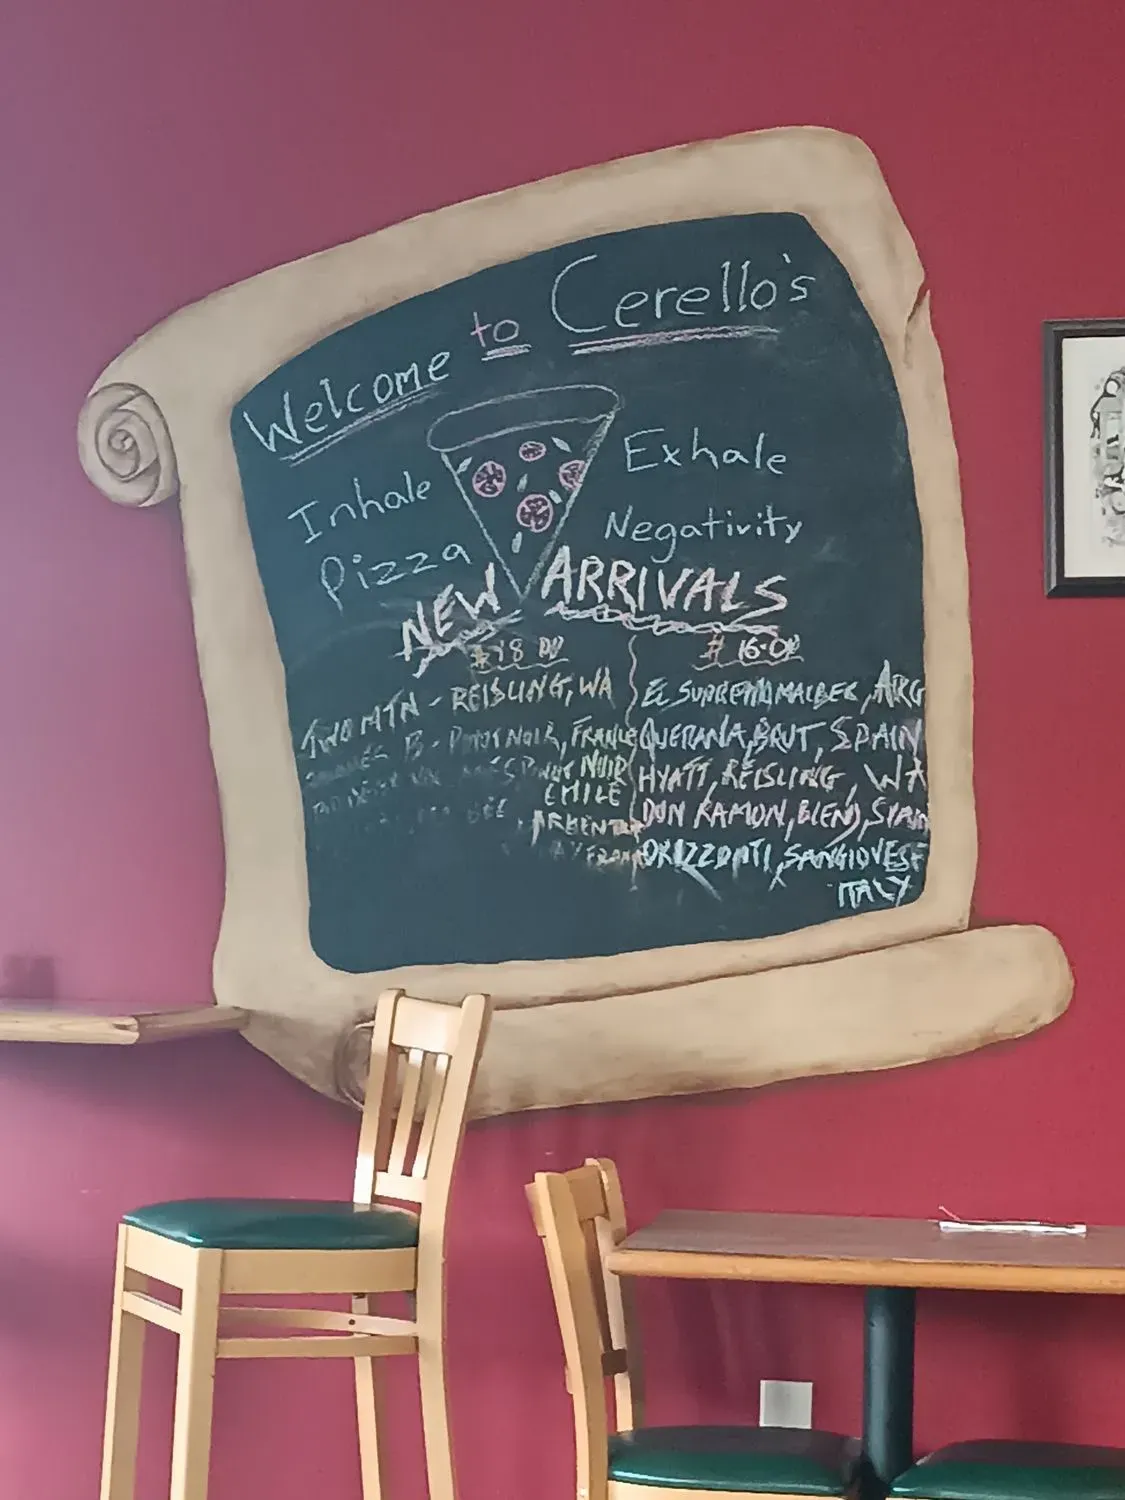 Welcome to Cerello's
Inhale
Pizza
Exhale
Negativity
NEW ARRIVALS
$18.00
TWO MTN - REISLING, WA
B - PINOT NOIR, FRANCE
PINOT NOIR
CHILE
ARGENTINA
FRANCE
$16.00
EL SUPREMO MALBEC, ARG
QUERANA, BRUT, SPAIN
HYATT, REISLING, WA
DON RAMON, BLEND, SPAIN
ORIZZONTI, SANGIOVESE
ITALY